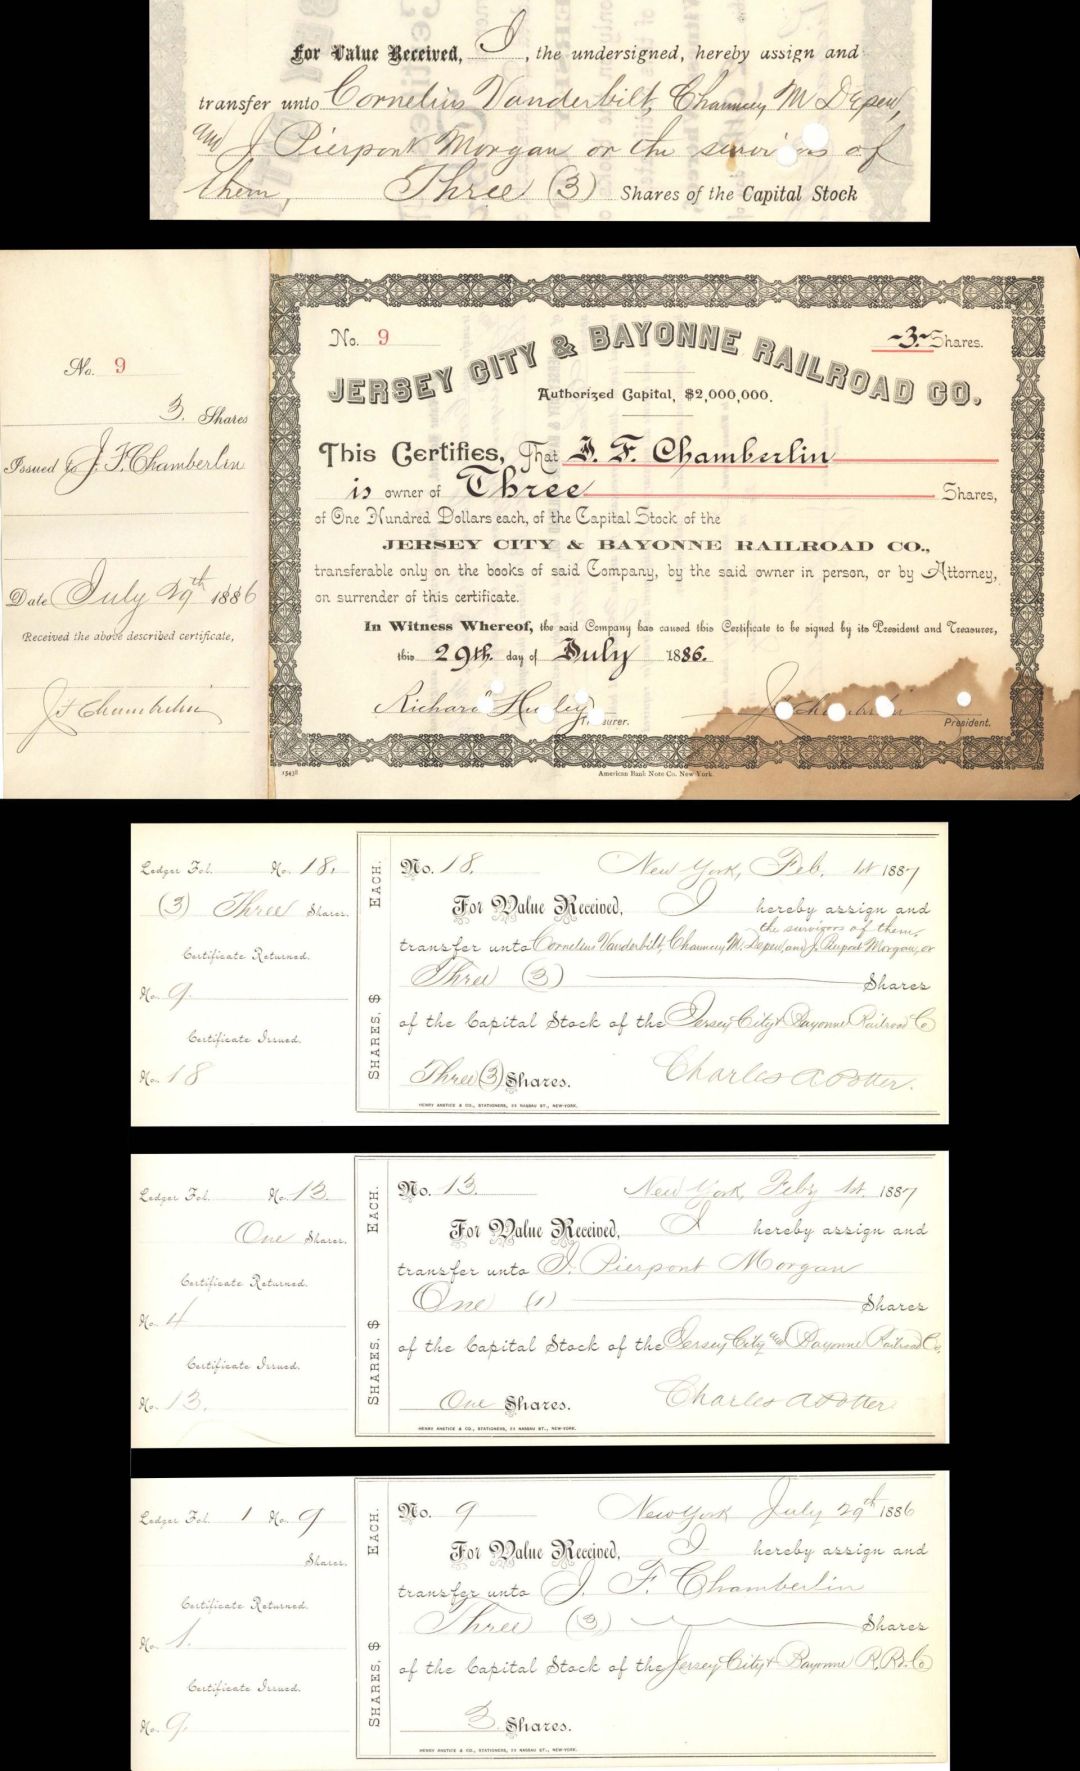 For Value Received, I, the undersigned, hereby assign and
transfer unto Cornelius Vanderbilt, Chauncey M Depew,
and J Pierpont Morgan or the survivors of
them, Three (3) Shares of the Capital Stock
No. 9
3. Shares
Issued to J. F. Chamberlin
Date July 29th 1886
Received the above described certificate,
J F Chamberlin
No. 9
-3- Shares.
JERSEY CITY & BAYONNE RAILROAD CO.
Authorized Capital, $2,000,000.
This Certifies, That J. F. Chamberlin
is owner of Three Shares,
of One Hundred Dollars each, of the Capital Stock of the
JERSEY CITY & BAYONNE RAILROAD CO.,
transferable only on the books of said Company, by the said owner in person, or by Attorney,
on surrender of this certificate.
In Witness Whereof, the said Company has caused this Certificate to be signed by its President and Treasurer,
this 29th. day of July 1886.
Richard Treasurer.
J F Chamberlin President.
15438
American Bank Note Co. New York
Ledger Fol. No. 18.
(3) Three Shares.
Certificate Returned.
No. 9.
Certificate Issued.
No. 18
SHARES, $ EACH.
No. 18. New York, Feb. 1st 1887
For Value Received, I hereby assign and
the survivors of them,
transfer unto Cornelius Vanderbilt, Chauncey M. Depew, and J. Pierpont Morgan, or
Three (3) Shares
of the Capital Stock of the Jersey City & Bayonne Railroad Co
Three (3) Shares. Charles A Potter.
HENRY ANSTICE & CO., STATIONERS, 23 NASSAU ST., NEW-YORK.
Ledger Fol. No. 13.
One Shares.
Certificate Returned.
No. 4
Certificate Issued.
No. 13.
SHARES, $ EACH.
No. 13. New York, Feby 1st, 1887
For Value Received, I hereby assign and
transfer unto J. Pierpont Morgan
One (1) Shares
of the Capital Stock of the Jersey City and Bayonne Railroad Co.
One Shares. Charles A Potter
HENRY ANSTICE & CO., STATIONERS, 23 NASSAU ST., NEW-YORK.
Ledger Fol. 1 No. 9
Shares.
Certificate Returned.
No. 1.
Certificate Issued.
No. 9.
SHARES, $ EACH.
No. 9 New York July 29th 1886
For Value Received, I hereby assign and
transfer unto J. F. Chamberlin
Three (3) Shares
of the Capital Stock of the Jersey City & Bayonne R. Rd. Co
3. Shares.
HENRY ANSTICE & CO., STATIONERS, 23 NASSAU ST., NEW-YORK.